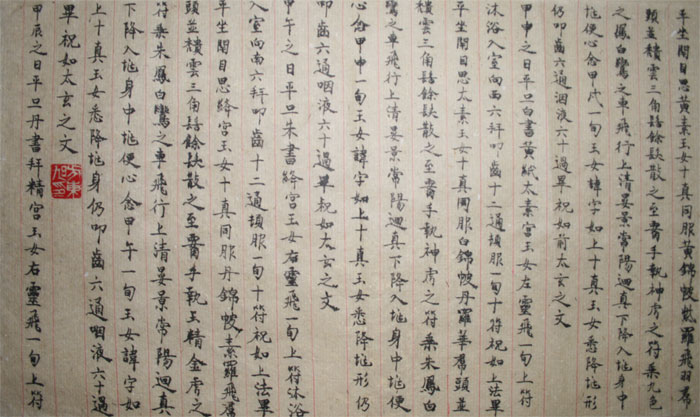 平坐閉目思黃真玉女十真同服黃錦帔紫羅飛羽裙
頭並頹雲三角髻餘髮散之至腰手執神虎之符乘九色
之鳳白鸞之車飛行上清晏景常陽迴真下降入某身中
某便心念甲戌一旬玉女諱字如上十真玉女悉降某形
仍叩齒六通咽液六十過畢祝如前太玄之文
甲申之日平旦白書黃紙太素宮玉女左靈飛一旬上符
沐浴入室向西六拜叩齒十二通頓服一旬十符祝如上法畢
平坐閉目思太素玉女十真同服白錦帔丹羅華裙頭並
頹雲三角髻餘髮散之至腰手執神虎之符乘朱鳳白
鸞之車飛行上清晏景常陽迴真下降入某身中某便
心念甲申一旬玉女諱字如上十真玉女悉降某形仍
叩齒六通咽液六十過畢祝如太玄之文
甲午之日平旦朱書絳宮玉女右靈飛一旬上符沐浴
入室向南六拜叩齒十二通頓服一旬十符祝如上法畢
平坐閉目思絳宮玉女十真同服丹錦帔素羅飛裙
頭並頹雲三角髻餘髮散之至腰手執玉精金虎之
符乘朱鳳白鸞之車飛行上清晏景常陽迴真
下降入某身中某便心念甲午一旬玉女諱字如
上十真玉女悉降某身仍叩齒六通咽液六十過
畢祝如太玄之文
甲辰之日平旦丹書拜精宮玉女右靈飛一旬上符
方東旭印